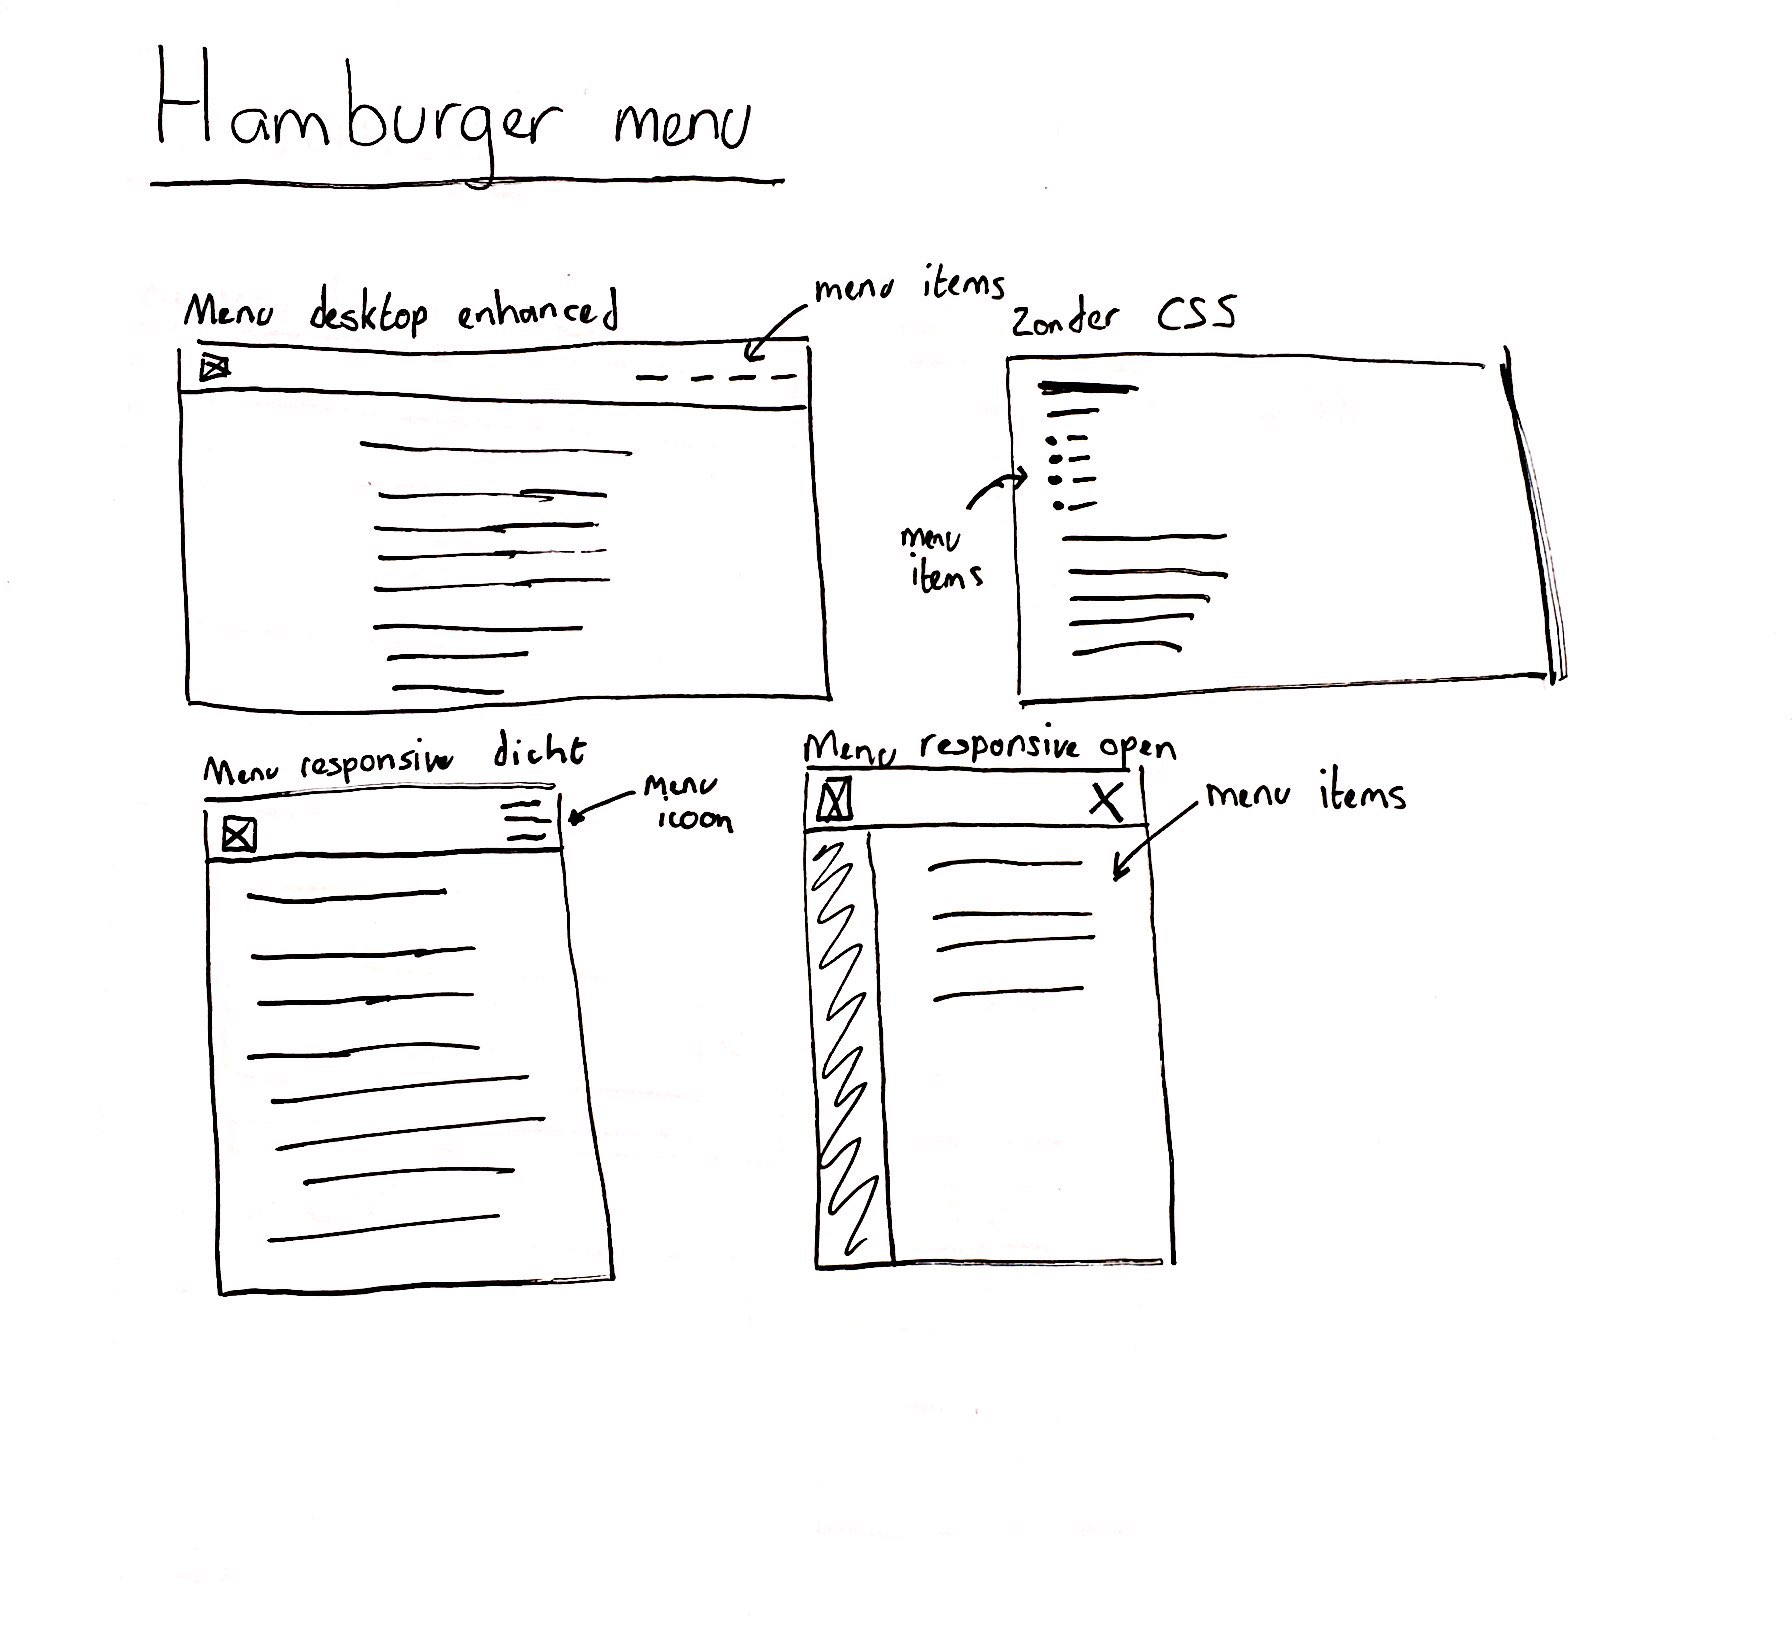 Hamburger menu
Menu desktop enhanced
menu items
Zonder CSS
menu
items
Menu responsive dicht
Menu
icoon
Menu responsive open
menu items